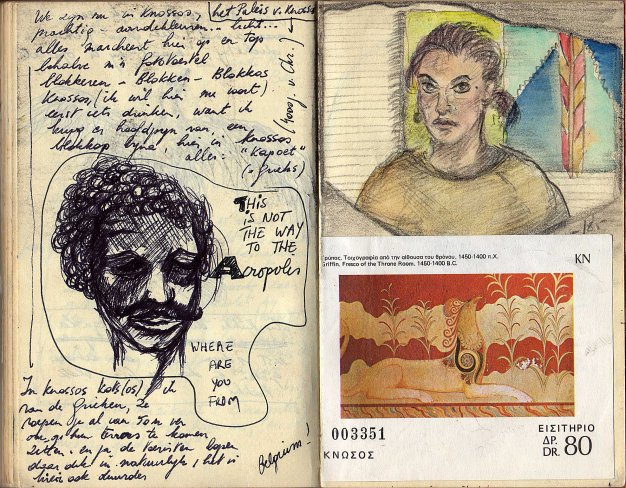 We zijn nu in Knossos, het Paleis v. Knossos
prachtig - aardekleuren... licht...
alles marcheert hier op en top
behalve m'n fototoestel
blokkeren - Blokken - Blokkos
Knossos, (ik wil hier nu voort)
eerst iets drinken, want ik
hoofdpijn van, een
hier in Knossos
alles: "Kapoet"
(v. Chr.)
THIS
IS NOT
THE WAY
TO THE
Acropoles
WHERE
ARE
YOU
FROM
In Knossos ik
van de Grieken, ze
roepen op al van ver
om bij hun terras te komen
zitten. en ja de toeristen lopen
daar dik in natuurlijk, het is
hier ook duurder
Belgium!
Γρύπας. Τοιχογραφία από την αίθουσα του θρόνου. 1450-1400 π.Χ.
Griffin, Fresco of the Throne Room. 1450-1400 B.C.
KN
003351
ΚΝΩΣΟΣ
ΕΙΣΙΤΗΡΙΟ
ΔΡ.
DR. 80